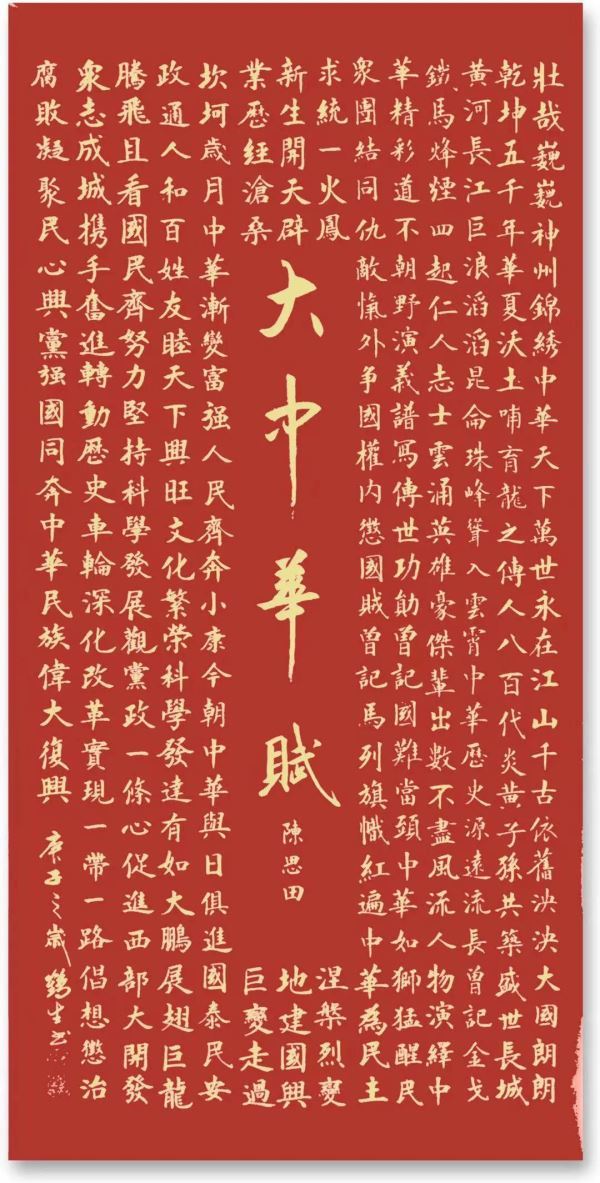 大中華賦
陳思田
壯哉巍巍神州錦绣中華天下萬世永在江山千古依舊泱泱大國朗朗
乾坤五千年華夏沃土哺育龍之傳人八百代炎黃子孫共築盛世長城
黃河長江巨浪滔滔昆侖珠峰聳入雲霄中華歷史源遠流長曾記金戈
鐵馬烽煙四起仁人志士雲涌英雄豪傑輩出數不盡風流人物演繹中
華精彩道不朝野演義譜寫傳世功勛曾記國難當頭中華如獅猛醒民
衆團結同仇敵愾外争國權内懲國賊曾記馬列旗幟紅遍中華為民主
求統一火鳳涅槃烈變
新生開天辟地建國興
業歷經滄桑巨變走過
坎坷歲月中華漸變富强人民齊奔小康今朝中華與日俱進國泰民安
政通人和百姓友睦天下興旺文化繁荣科學發達有如大鵬展翅巨龍
騰飛且看國民齊努力堅持科學發展觀黨政一條心促進西部大開發
衆志成城携手奮進轉動歷史車輪深化改革實現一帶一路倡想懲治
腐敗凝聚民心興黨强國同奔中華民族偉大復興
庚子之歲